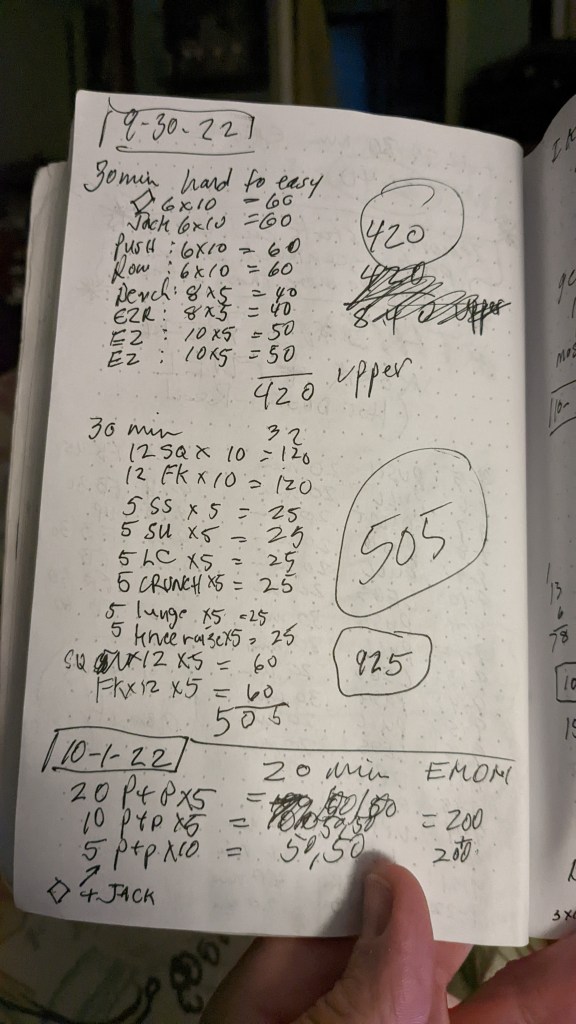 9-30-22
30 min hard to easy
◇ 6x10 = 60
Jack 6x10 = 60
Push : 6x10 = 60
Row : 6x10 = 60
Bench : 8x5 = 40
EZR : 8x5 = 40
EZ : 10x5 = 50
EZ : 10x5 = 50
420 upper
420
420
30 min 32
12 SQ x 10 = 120
12 FK x 10 = 120
5 SS x 5 = 25
5 SU x 5 = 25
5 LC x 5 = 25
5 CRUNCH x 5 = 25
5 lunge x5 = 25
5 knee raise x5 = 25
SQ x12 x 5 = 60
FK x 12 x 5 = 60
505
505
925
10-1-22 20 min EMOM
20 P+P x5 = 100/100
10 p+p x5 = 50,50 = 200
5 p+p x10 = 50,50 200
◇ + JACK